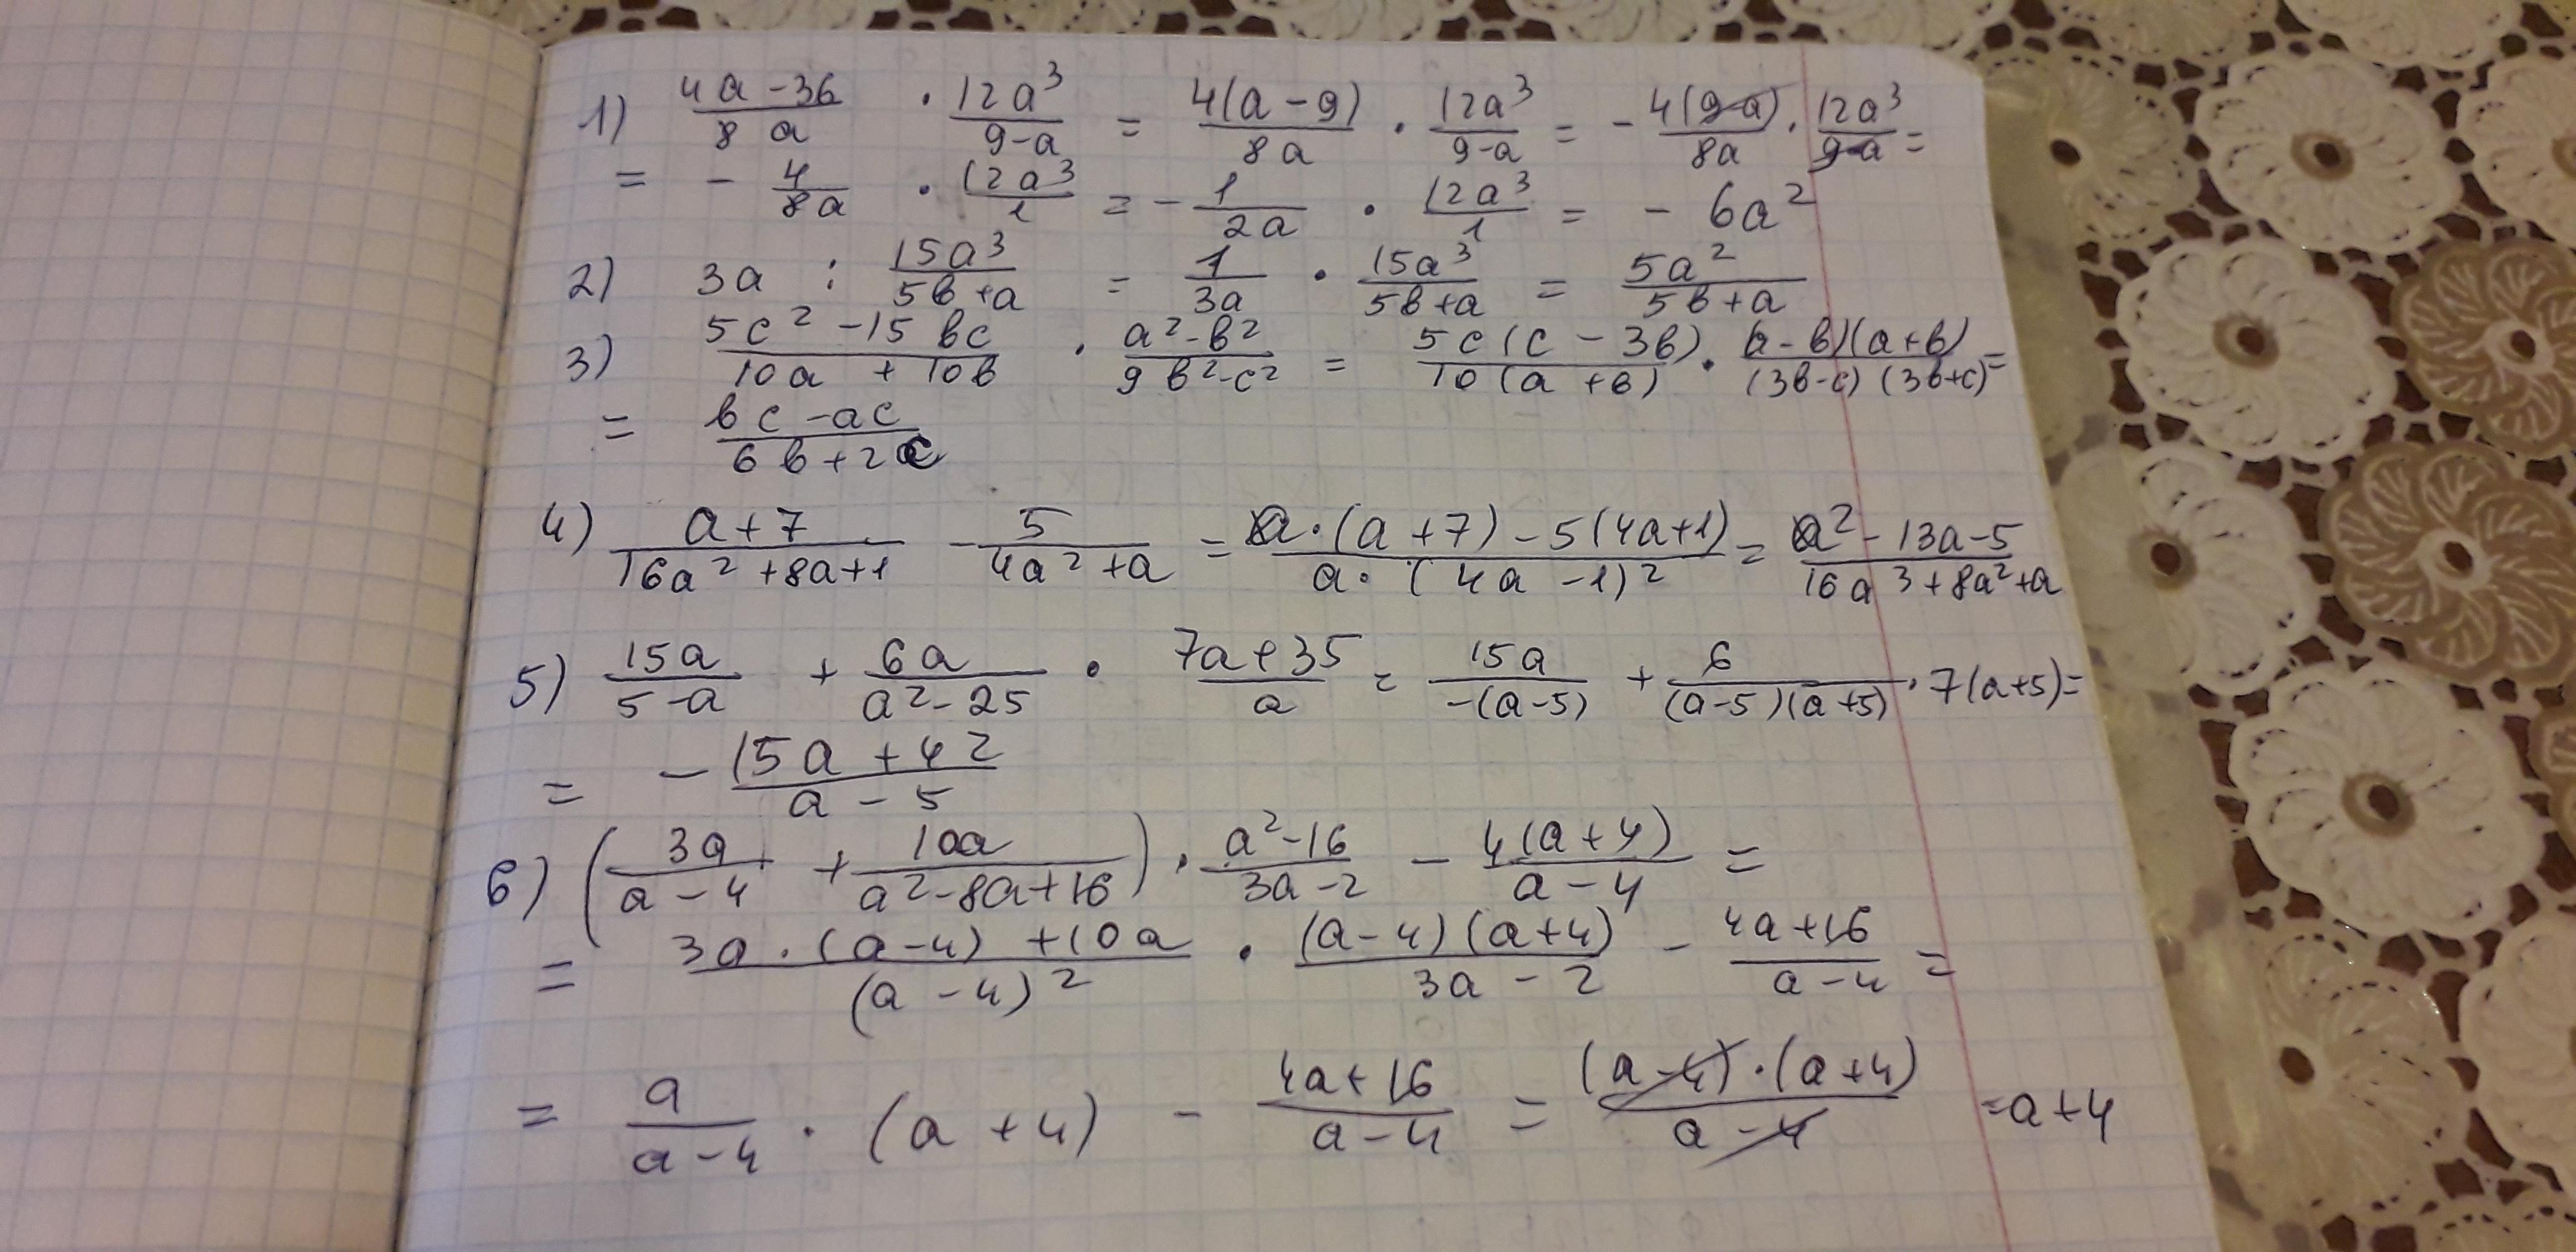 1) (4a-36)/(8a) · (12a³)/(9-a) = (4(a-9))/(8a) · (12a³)/(9-a) = -(4(9-a))/(8a) · (12a³)/(9-a) =
= -4/(8a) · (12a³)/1 = -1/(2a) · (12a³)/1 = -6a²
2) 3a : (15a³)/(5b+a) = 1/(3a) · (15a³)/(5b+a) = (5a²)/(5b+a)
3) (5c²-15bc)/(10a+10b) · (a²-b²)/(9b²-c²) = (5c(c-3b))/(10(a+b)) · ((a-b)(a+b))/((3b-c)(3b+c)) =
= (bc-ac)/(6b+2c)
4) (a+7)/(16a²+8a+1) - 5/(4a²+a) = (a·(a+7)-5(4a+1))/(a·(4a-1)²) = (a²-13a-5)/(16a³+8a²+a)
5) (15a)/(5-a) + (6a)/(a²-25) · (7a+35)/a = (15a)/(-(a-5)) + 6/((a-5)(a+5)) · 7(a+5) =
= -(15a+42)/(a-5)
6) ((3a)/(a-4) + (10a)/(a²-8a+16)) · (a²-16)/(3a-2) - (4(a+4))/(a-4) =
= (3a·(a-4)+10a)/((a-4)²) · ((a-4)(a+4))/(3a-2) - (4a+16)/(a-4) =
= a/(a-4) · (a+4) - (4a+16)/(a-4) = ((a-4)·(a+4))/(a-4) = a+4